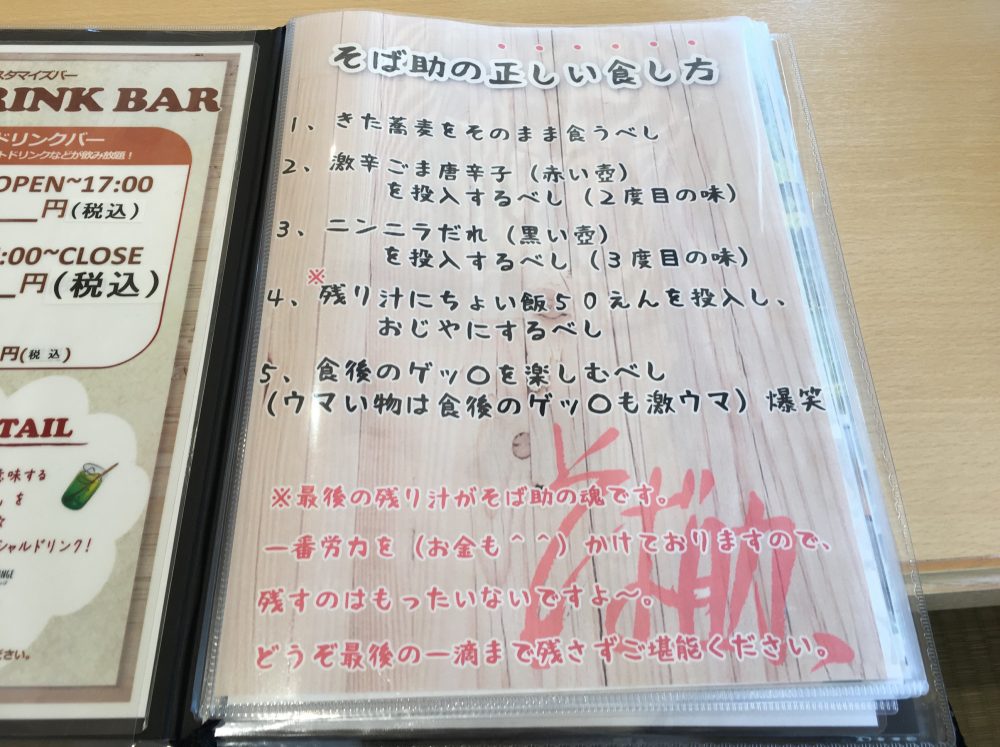 スタマイズバー
RINK BAR
ドリンクバー
トドリンクなどが飲み放題！
OPEN~17:00
円(税込)
:00~CLOSE
円(税込)
円(税込)
TAIL
意味する
を
シャルドリンク!
NGE
ださい。
そば助の正しい食し方
1、きた蕎麦をそのまま食うべし
2、激辛ごま唐辛子（赤い壺）
を投入するべし（2度目の味）
3、ニンニラだれ（黒い壺）
を投入するべし（3度目の味）
※
4、残り汁にちょい飯50えんを投入し、
おじやにするべし
5、食後のゲッ〇を楽しむべし
（ウマい物は食後のゲッ〇も激ウマ）爆笑
※最後の残り汁がそば助の魂です。
一番労力を（お金も＾＾）かけておりますので、
残すのはもったいないですよ～。
どうぞ最後の一滴まで残さずご堪能ください。
そば助